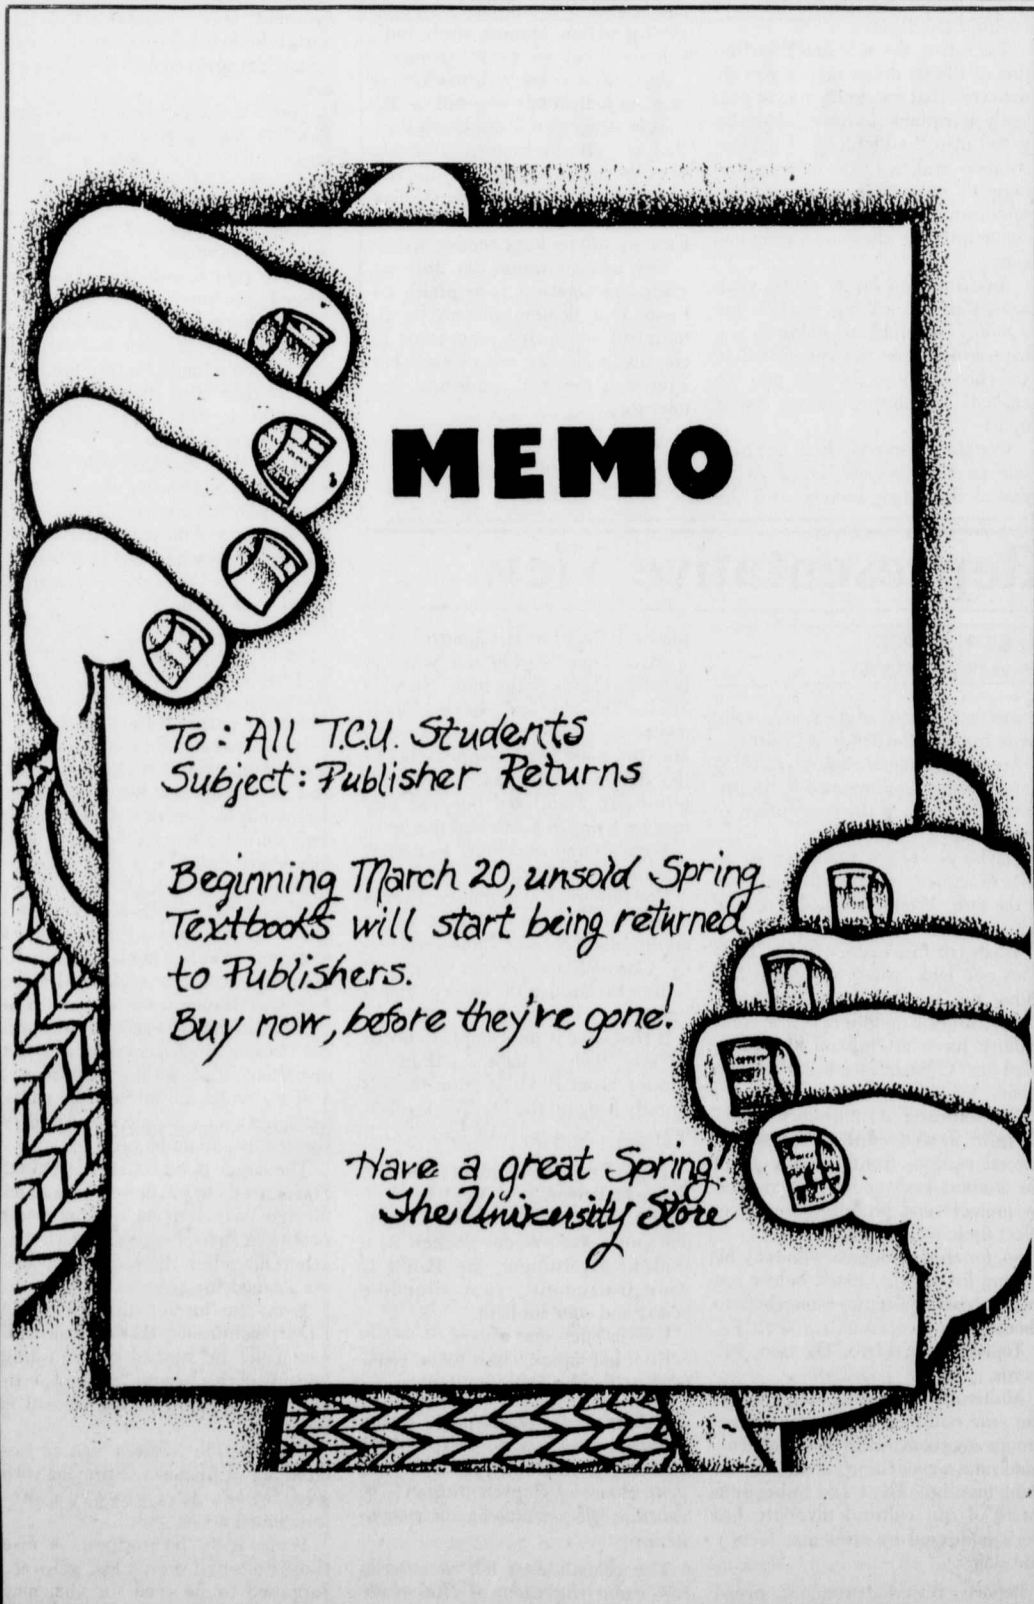 MEMO
To: All T.C.U. Students
Subject: Publisher Returns
Beginning March 20, unsold Spring
Textbooks will start being returned
to Publishers.
Buy now, before they're gone!
Have a great Spring!
The University Store